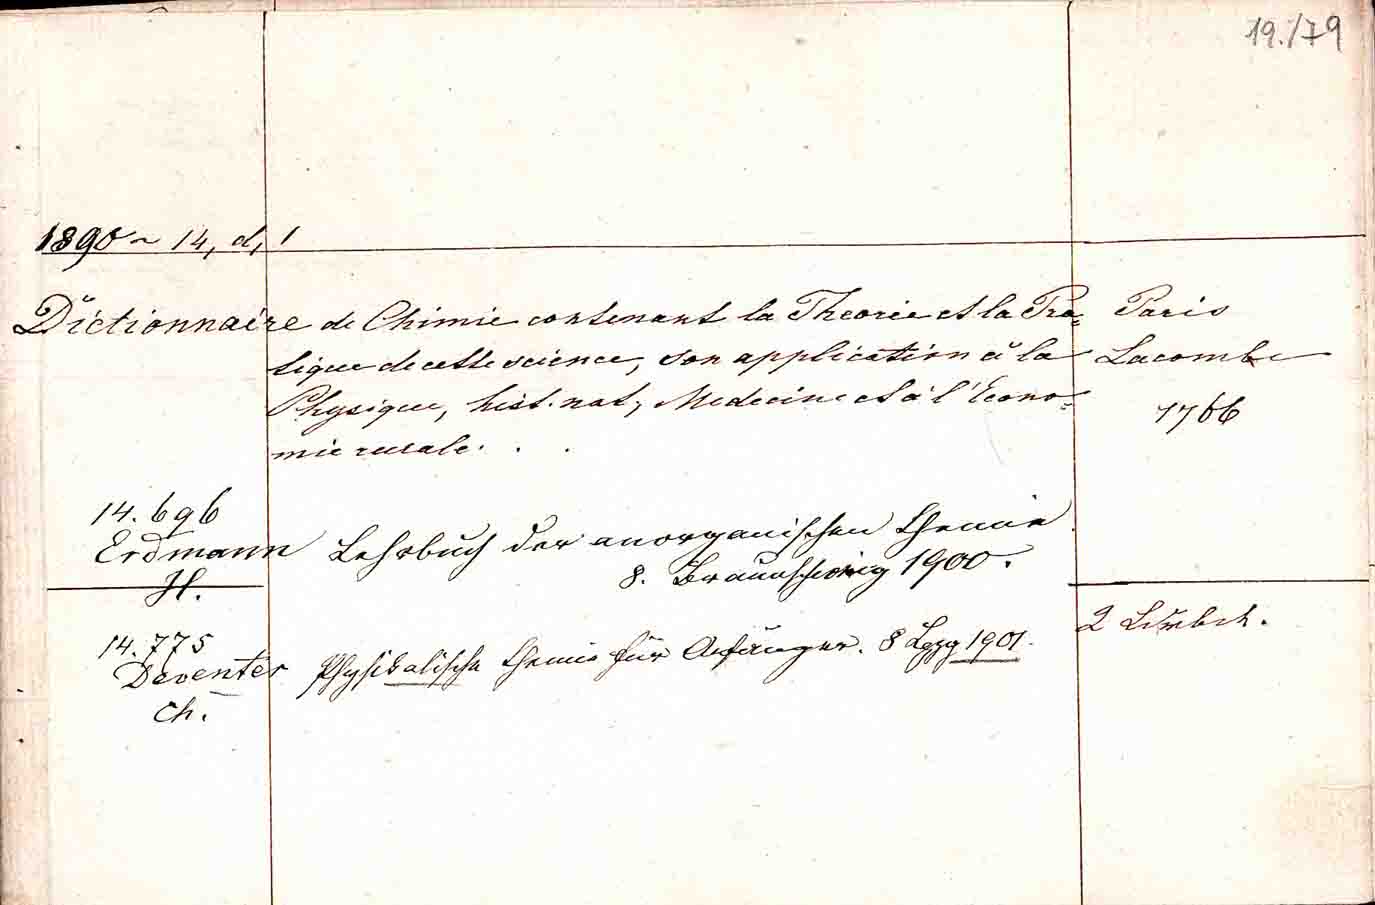 19./79
1890 ~ 14, d, 1
Dictionnaire de Chimie contenant la Theorie et la Pra= Paris
tique de cette science, son application à la Lacombe
Physique, hist. nat., Medecine et à l'Econo= 1766
mie rurale. . .
14.696
Erdmann Lehrbuch der anorganischen Chemie
H. 8. Braunschweig 1900.
14.775 2 Lürbch.
Deventer Physikalische Chemie für Anfänger. 8 Lpzg 1901.
Ch.